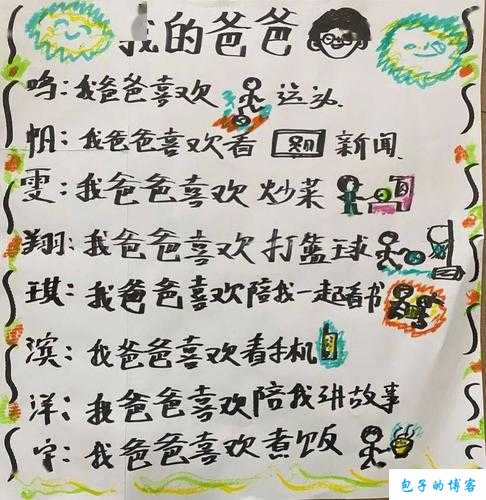 我的爸爸
鸣：我爸爸喜欢运动.
帆：我爸爸喜欢看新闻.
雯：我爸爸喜欢炒菜
翔：我爸爸喜欢打篮球
琪：我爸爸喜欢陪我一起看书
滨：我爸爸喜欢看手机
洋：我爸爸喜欢陪我讲故事
宇：我爸爸喜欢煮饭
包子的博客